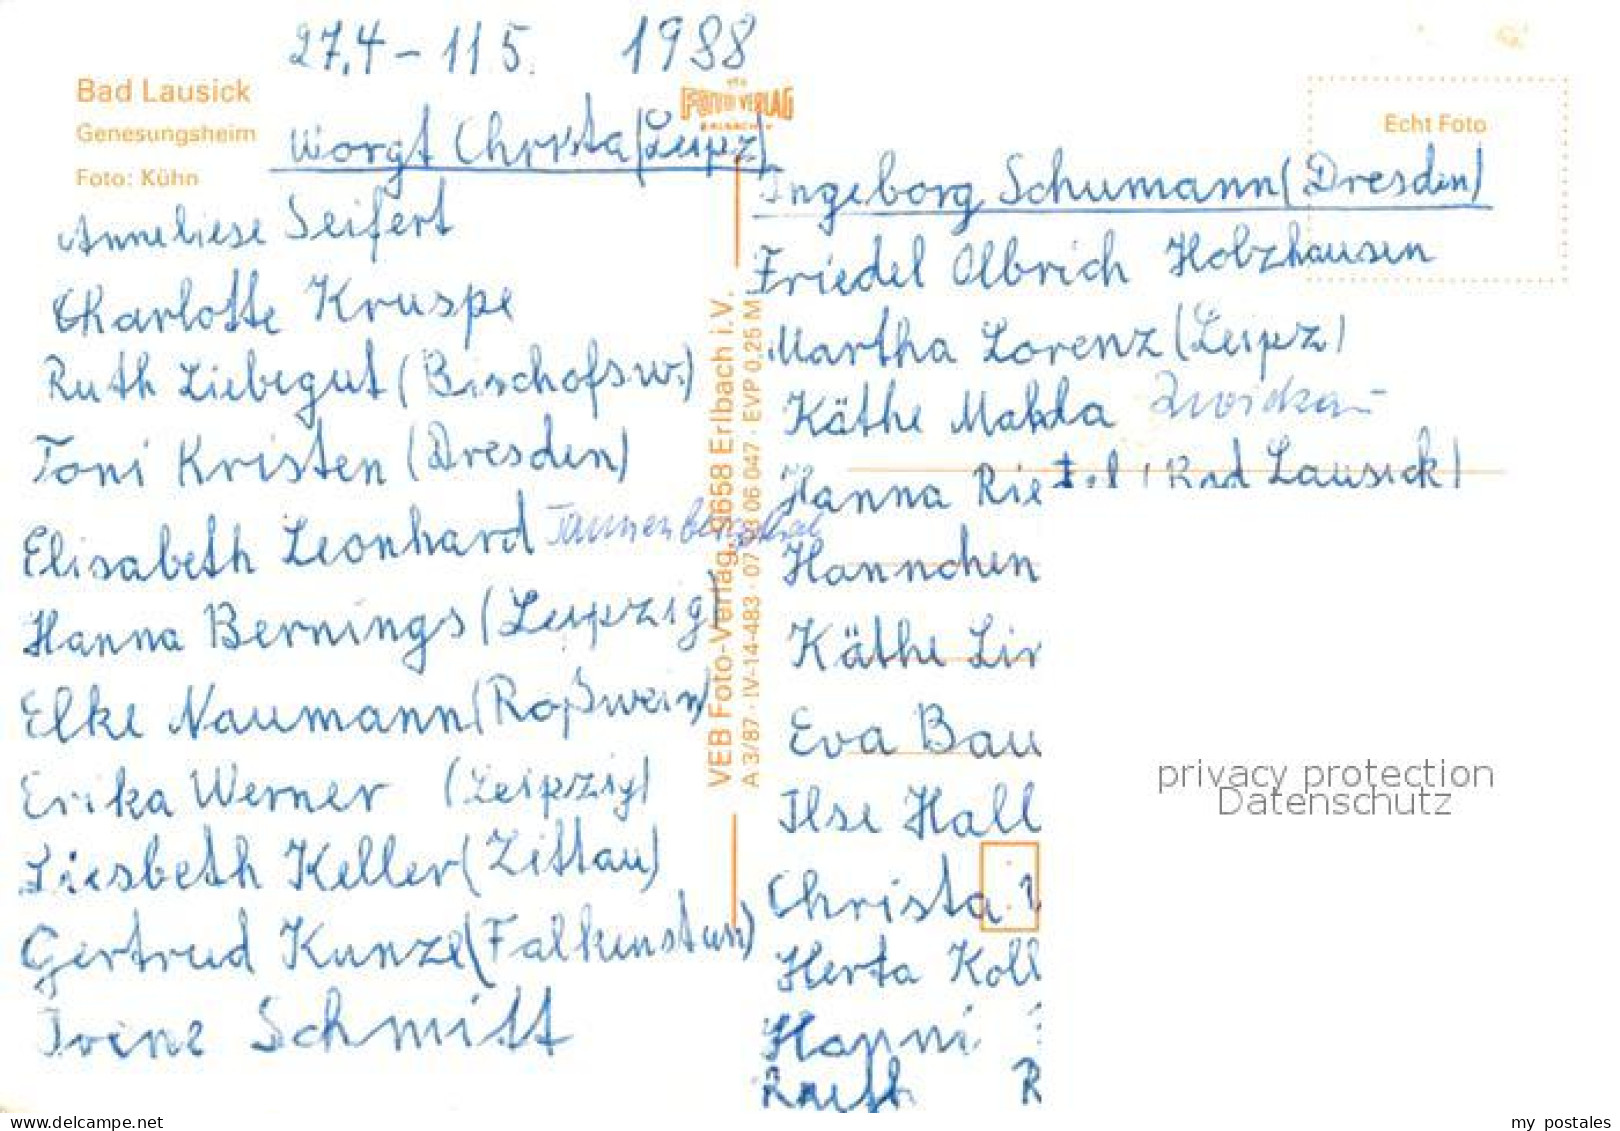 27.4 – 11 5. 1988
Bad Lausick
Genesungsheim
Foto: Kühn
Worgt Christa (Leipz)
Anneliese Seifert
Charlotte Kruspe
Ruth Liebegut (Bischofsw.)
Toni Kristen (Dresden)
Elisabeth Leonhard
Hanna Bernings (Leipzig)
Elke Naumann (Roßwein)
Erika Werner (Leipzig)
Liesbeth Keller (Zittau)
Gertrud Kunze (Falkenstein)
Irene Schmitt
FOTO VERLAG
VEB Foto-Verlag, 9658 Erlbach i.V.
A 3/87 · IV-14-483 · 07 06 047 · EVP 0,25 M
Echt Foto
Ingeborg Schumann (Dresden)
Friedel Olbrich Holzhausen
Martha Lorenz (Leipz)
Käthe Zwickau
Hanna (Bad Lausick)
Hannchen
Käthe Lin
Eva Bau
Ilse Hall
Christa
Herta Koll
Hanni
R
privacy protection
Datenschutz
www.delcampe.net
my_postales